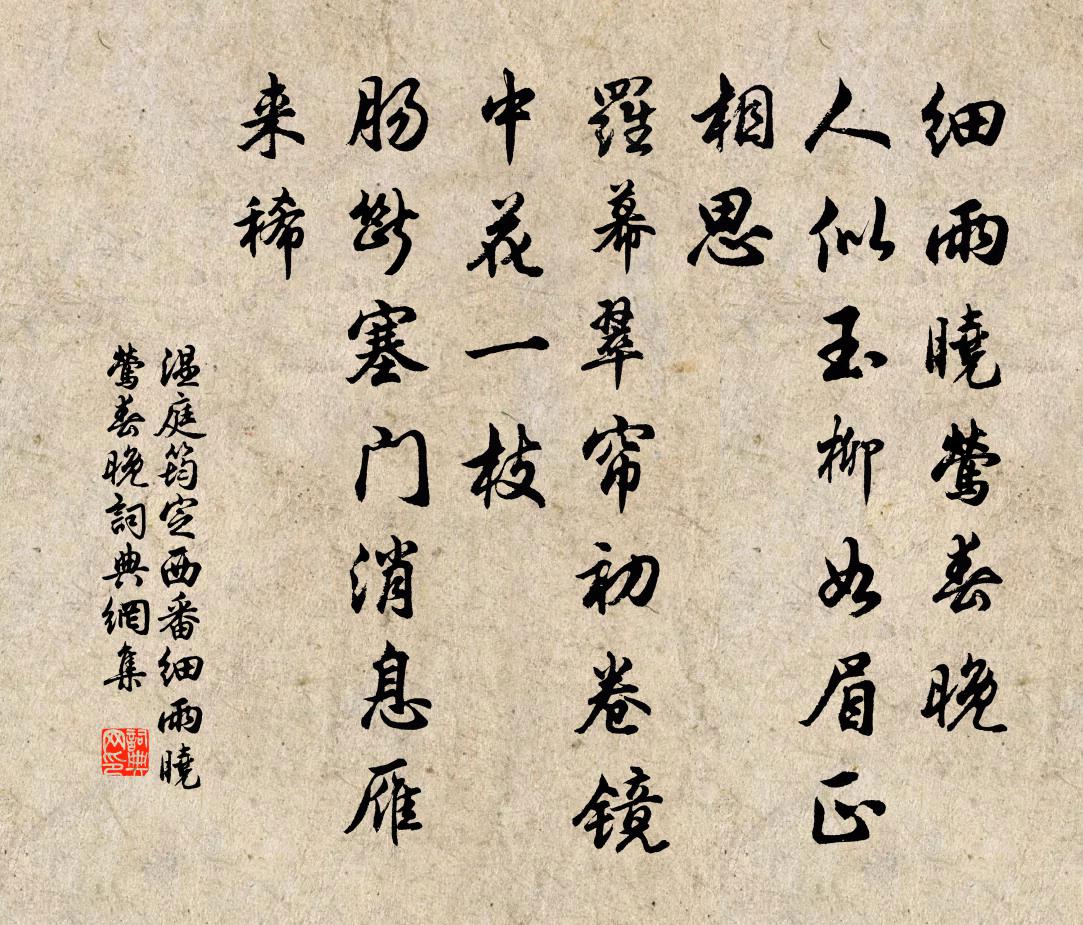 细雨曉鶯春晚
人似玉柳如眉正
相思
羅幕翠帘初卷镜
中花一枝
肠斷塞门消息雁
来稀
温庭筠定西番细雨曉
鶯春晚詞典網集
詞典网印